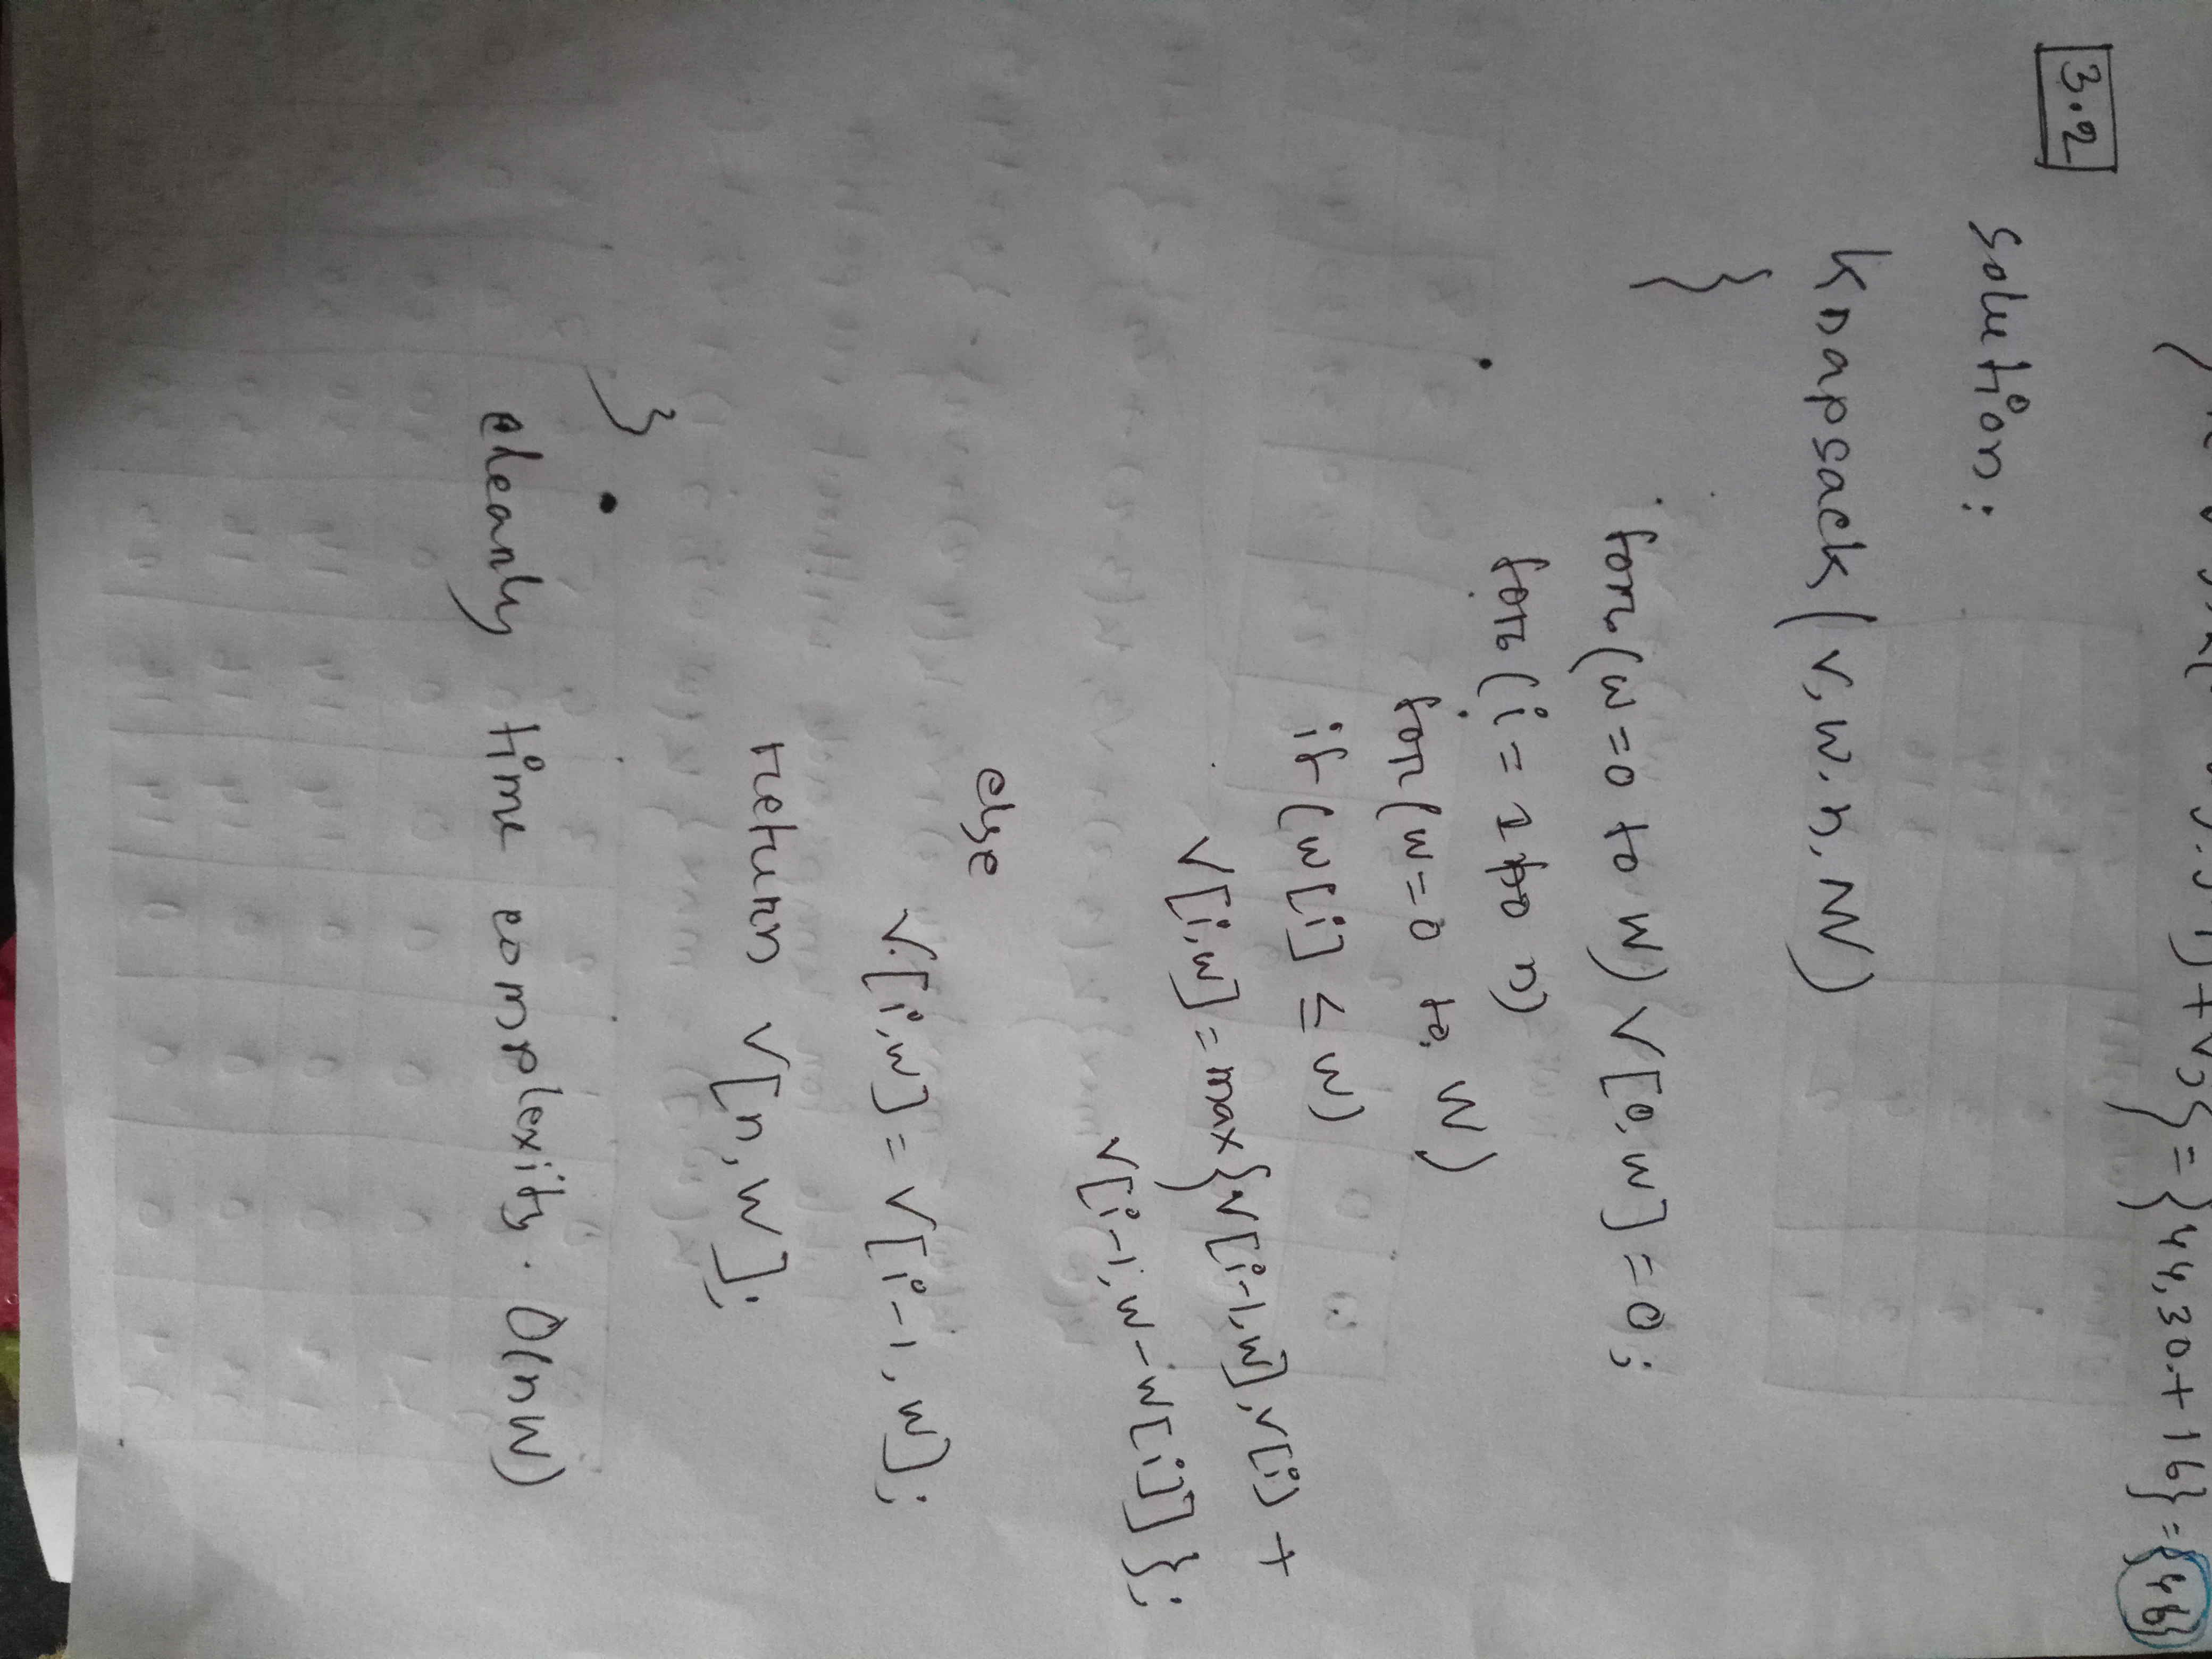 = {44, 30 + 16} = {46}
3.2
Solution:
Knapsack (v, w, n, W)
{
for (w=0 to W) V[0,w] = 0;
for (i = 1 to n)
for (w=0 to W)
if (w[i] ≤ w)
V[i,w] = max{V[i-1,w], v[i] +
V[i-1, w-w[i]]};
else
V[i,w] = V[i-1, w];
return V[n, W];
}
clearly time complexity. O(nW)